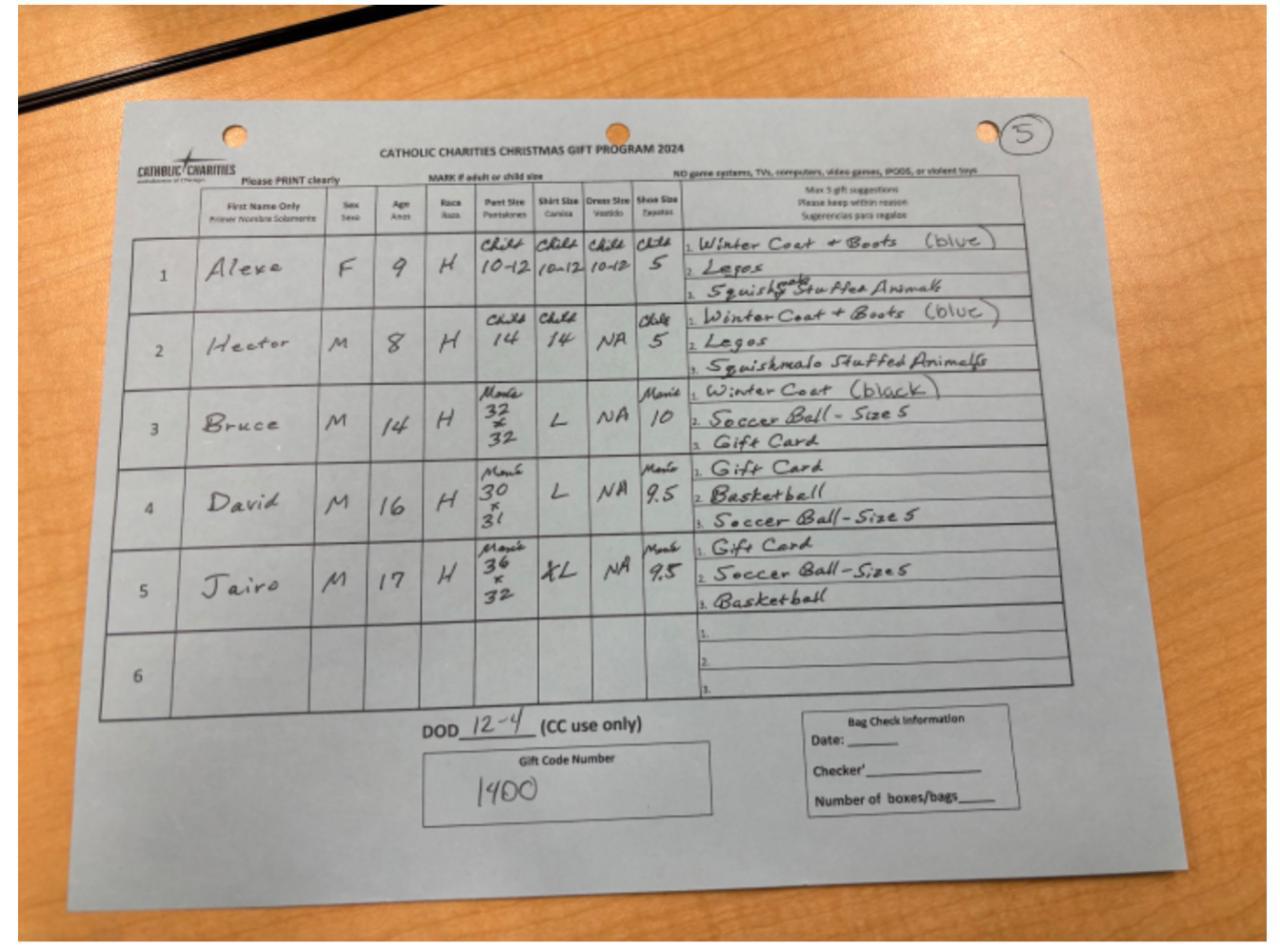 5
CATHOLIC CHARITIES CHRISTMAS GIFT PROGRAM 2024
CATHOLIC CHARITIES
Please PRINT clearly MARK if adult or child size NO game systems, TVs, computers, video games, IPODS, or violent toys
First Name Only Sex Age Race Pant Size Shirt Size Dress Size Shoe Size Max 3 gift suggestions
Please keep within reason
Primer Nombre Solamente Sexo Anos Raza Pantalones Camisa Vestido Zapatos Sugerencias para regalos
1 Alexa F 9 H Child 10-12 Child 10-12 Child 10-12 Child 5
1. Winter Coat + Boots (blue)
2. Legos
3. Squishmalo Stuffed Animals
2 Hector M 8 H Child 14 Child 14 NA Child 5
1. Winter Coat + Boots (blue)
2. Legos
3. Squishmalo Stuffed Animals
3 Bruce M 14 H Men's 32 x 32 L NA Men's 10
1. Winter Coat (black)
2. Soccer Ball - Size 5
3. Gift Card
4 David M 16 H Men's 30 x 31 L NA Men's 9.5
1. Gift Card
2. Basketball
3. Soccer Ball - Size 5
5 Jairo M 17 H Men's 36 x 32 XL NA Men's 9.5
1. Gift Card
2. Soccer Ball - Size 5
3. Basketball
6
1.
2.
3.
DOD 12-4 (CC use only)
Gift Code Number
1400
Bag Check Information
Date:
Checker'
Number of boxes/bags